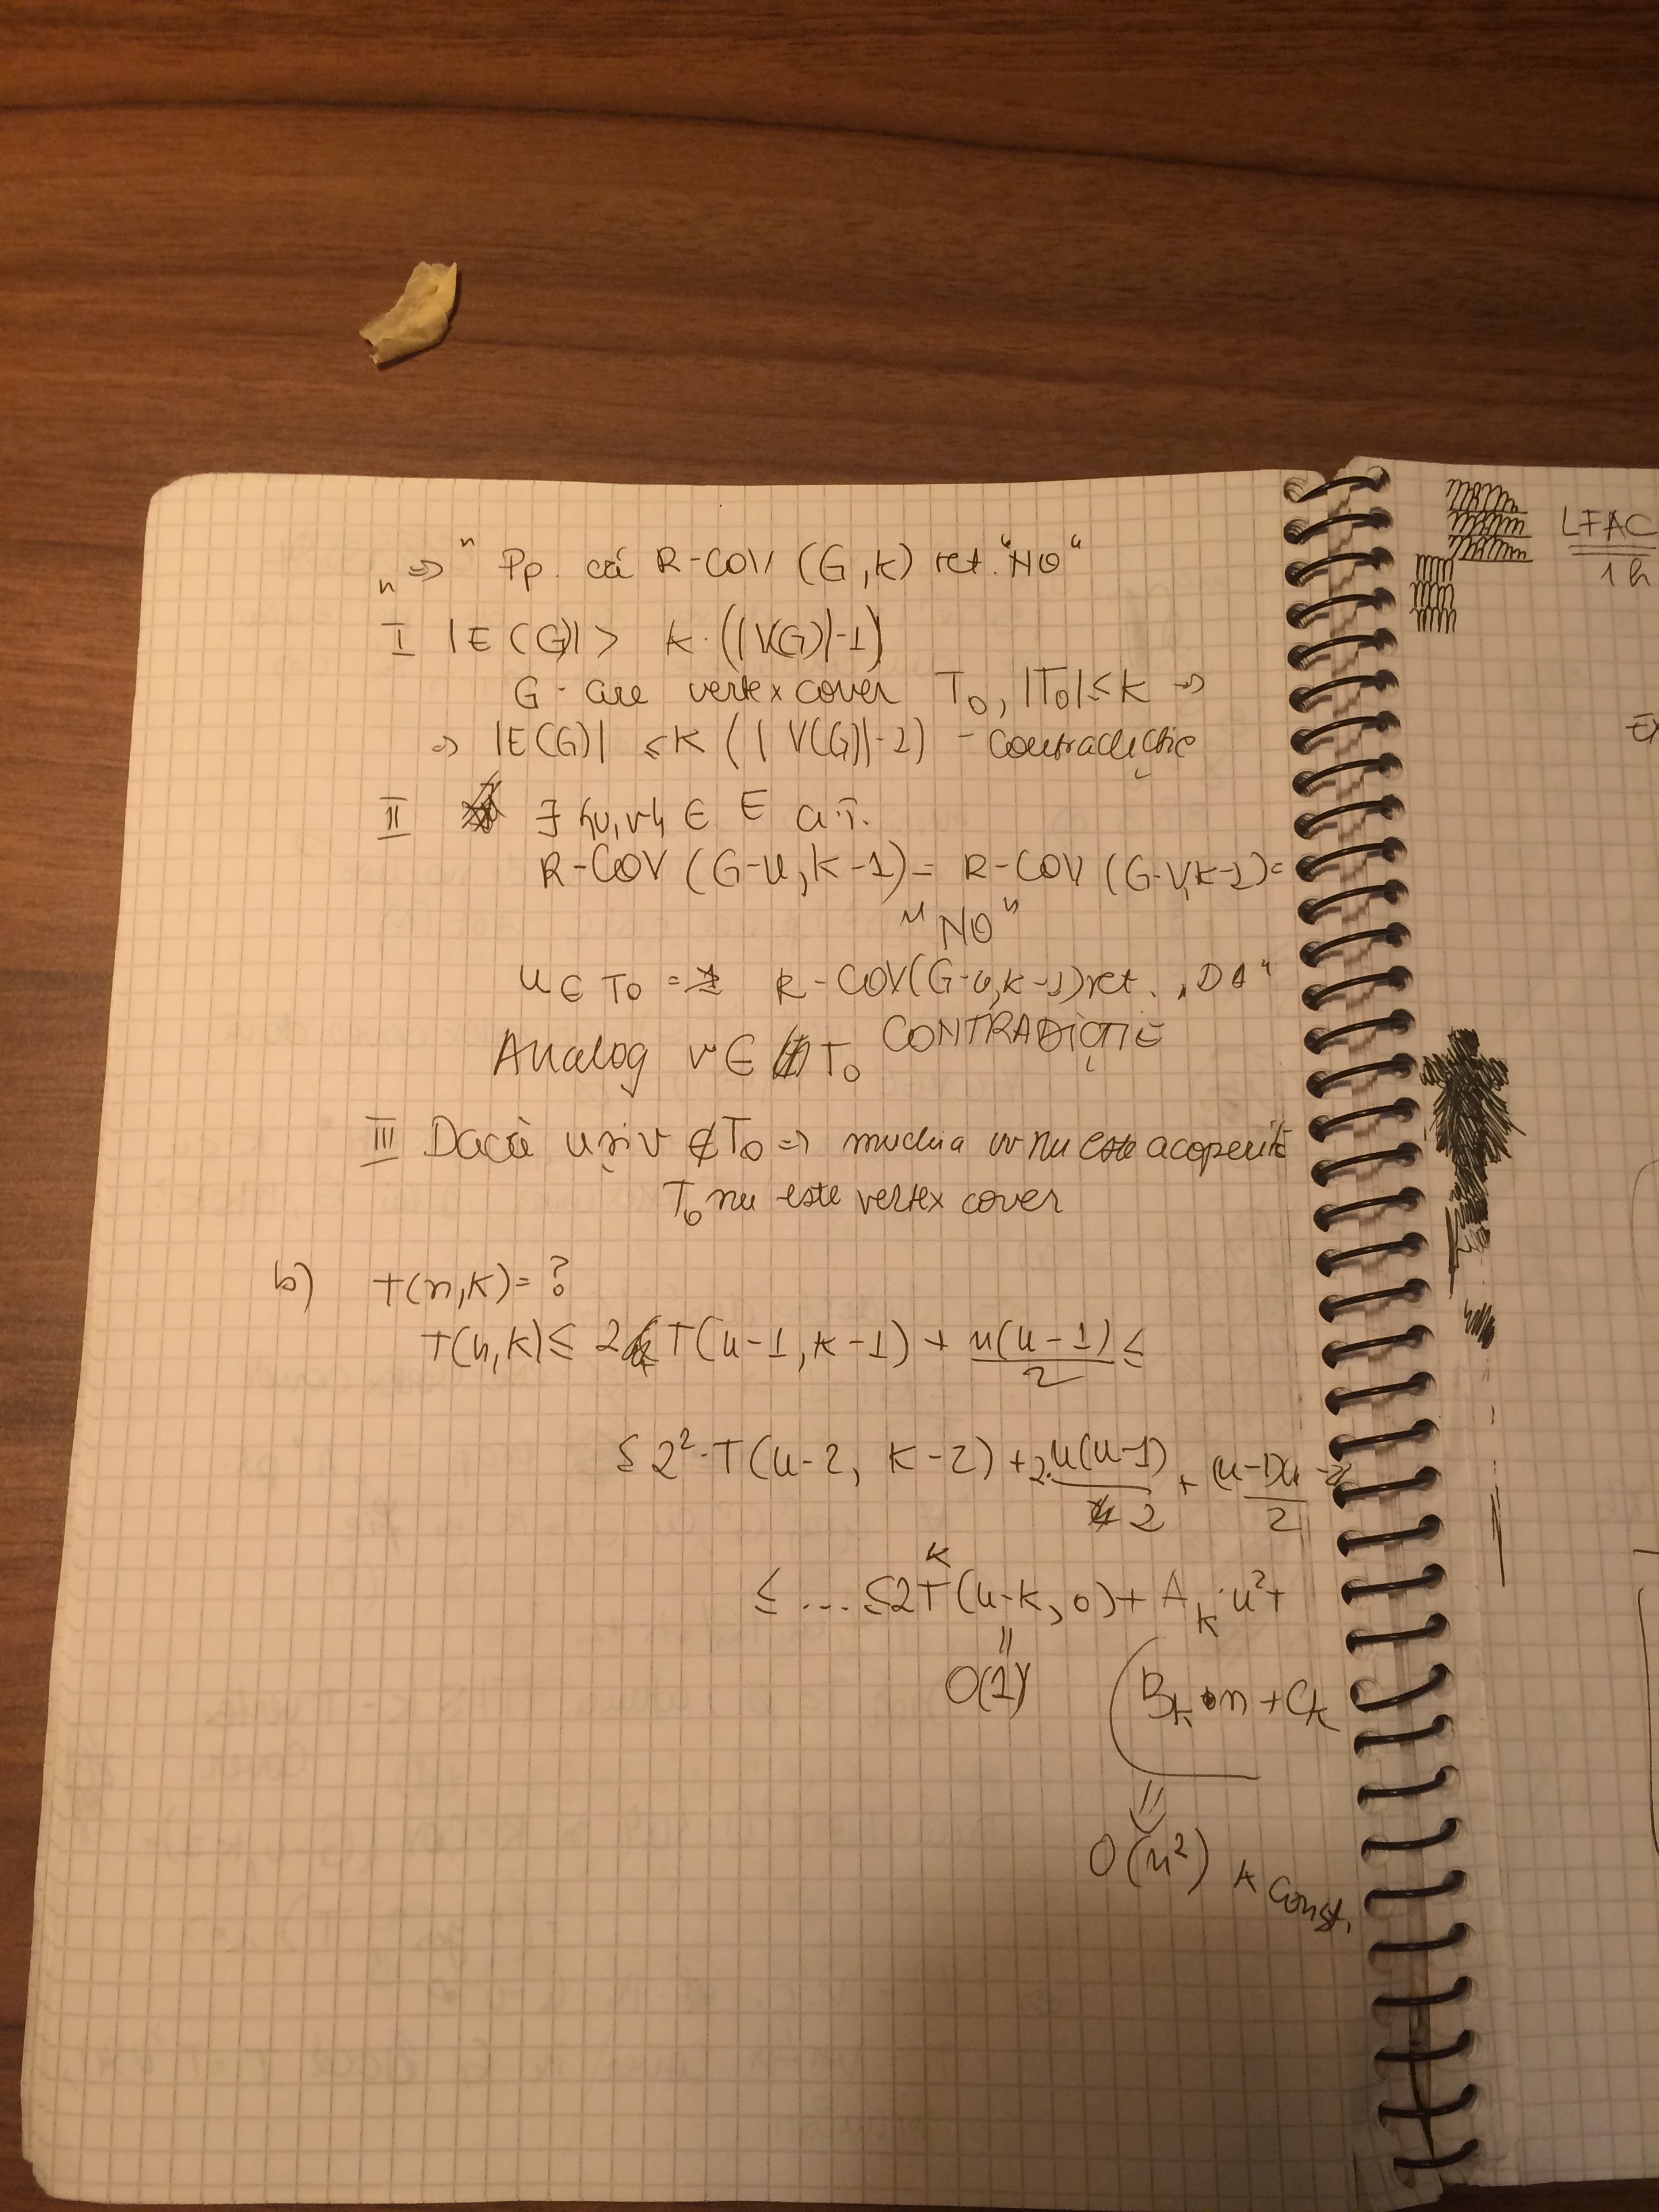 "⇒" Pp. că R-COV (G,k) ret. "NO"
I |E(G)| > k·(|V(G)|-1)
G - are vertex cover T₀, |T₀| ≤ k ⇒
⇒ |E(G)| ≤ k (|V(G)|-1) - contradicție
II ∃ {u,v} ∈ E a.î.
R-COV (G-u, k-1) = R-COV (G-v, k-1) =
"NO"
u ∈ T₀ ⇒ R-COV(G-u, k-1) ret. „DA"
CONTRADICȚIE
Analog v ∈ T₀
III Dacă u și v ∉ T₀ ⇒ muchia uv nu este acoperită
T₀ nu este vertex cover
b) T(n,k) = ?
T(n,k) ≤ 2 T(n-1, k-1) + n(n-1)/2 ≤
≤ 2²·T(n-2, k-2) + 2·n(n-1)/2 + (n-1)(n-2)/2
≤ ... ≤ 2ᵏ T(n-k, 0) + Aₖ·n² +
O(1)
Bₖ·n + Cₖ
⇓
O(n²) k const.
LFAC
1h